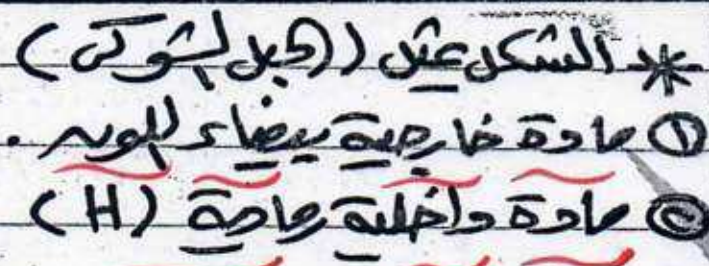 * الشكل يمثل ((الحبل الشوكى)
① مادة خارجية بيضاء اللون.
② مادة داخلية رمادية (H)